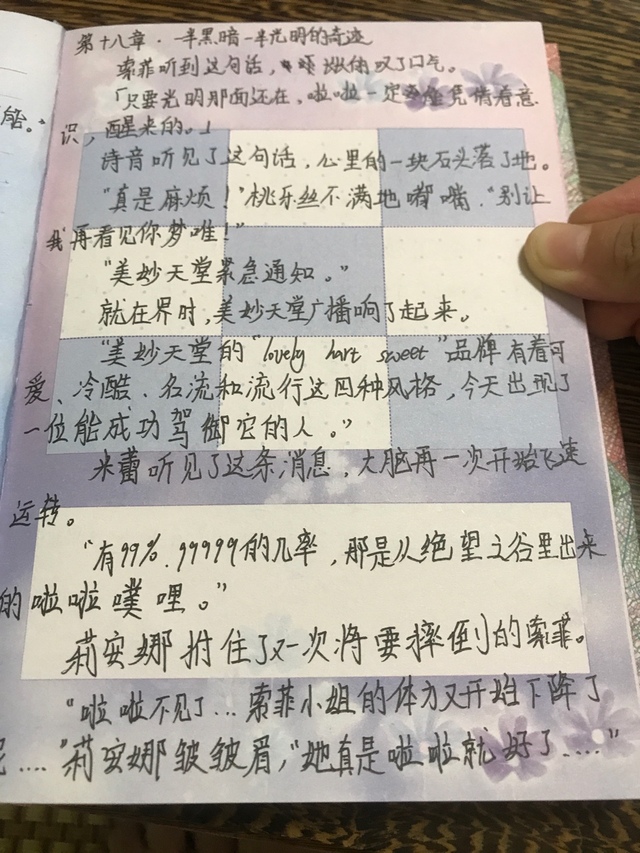 第十八章·一半黑暗一半光明的奇迹
索菲听到这句话，微微叹了口气。
「只要光明那面还在，啦啦一定会凭借着意
识，醒来的。」
诗音听见了这句话，心里的一块石头落了地。
“真是麻烦！”桃乐丝不满地嘟嘴，“别让
我再看见你梦唯！”
“美妙天堂紧急通知。”
就在界时，美妙天堂广播响了起来。
“美妙天堂的“lovely hart sweet”品牌有着可
爱、冷酷、名流和流行这四种风格，今天出现了
一位能成功驾御它的人。”
米蕾听见了这条消息，大脑再一次开始飞速
运转。
“有99%.99999的几率，那是从绝望之谷里出来
的啦啦噗哩。”
莉安娜拊住了又一次将要摔倒的索菲。
“啦啦不见了...索菲小姐的体力又开始下降了
呢....”莉安娜皱皱眉，“她真是啦啦就好了....”
能。”